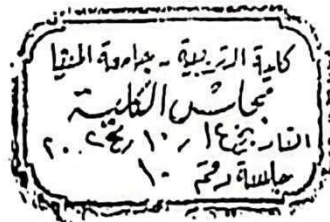 كلية التربية - جامعة المنيا
مجلس الكلية
التاريخ ١٤ / ١٠ / ٢٠٢٤
جلسة رقم ١٠